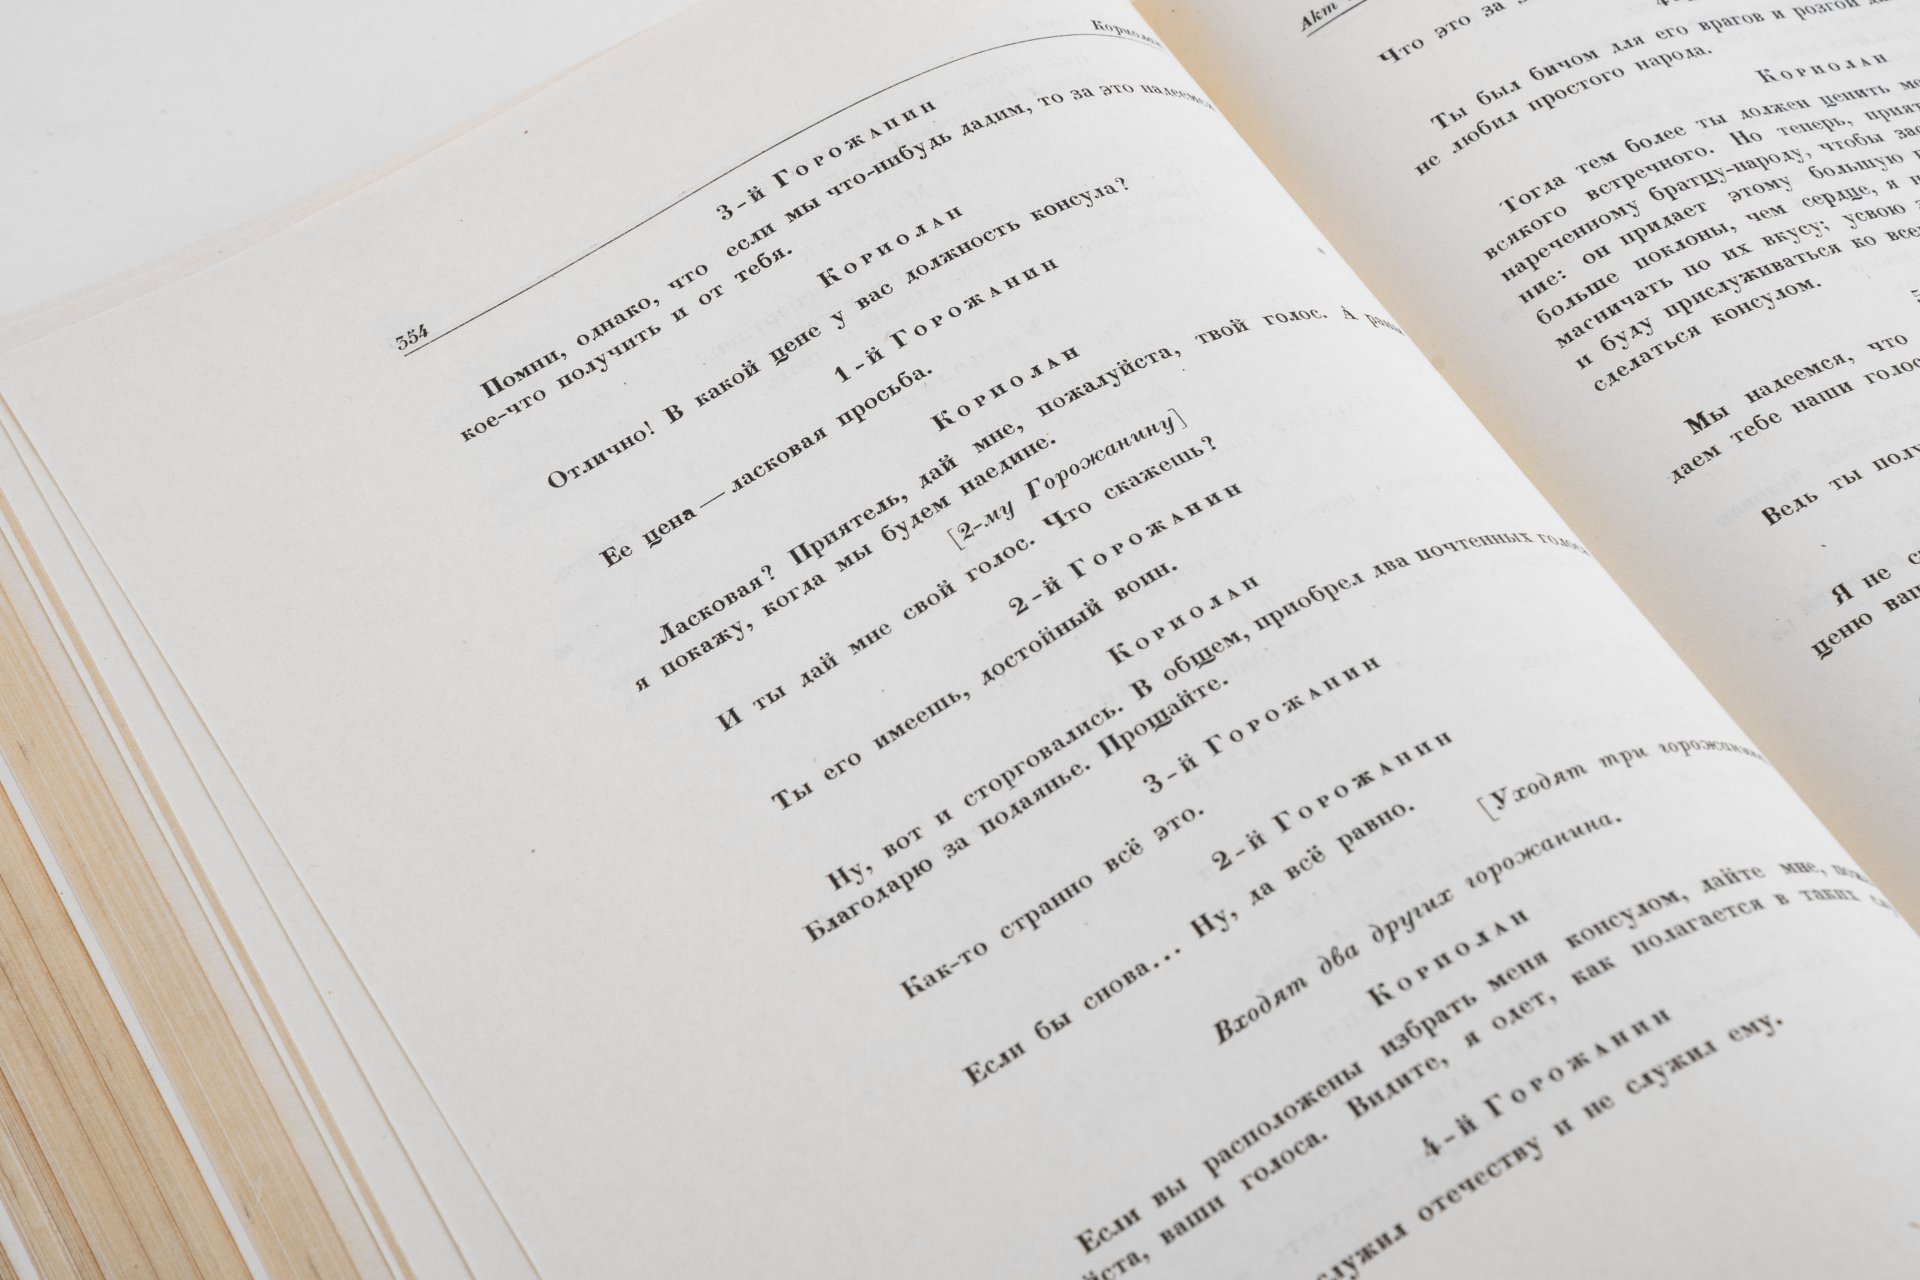 354
3-й Горожанин
Помни, однако, что если мы что-нибудь дадим, то за это надеемся
кое-что получить и от тебя.
Кориолан
Отлично! В какой цене у вас должность консула?
1-й Горожанин
Ее цена — ласковая просьба.
Кориолан
Ласковая? Приятель, дай мне, пожалуйста, твой голос. А
я покажу, когда мы будем наедине.
[2-му Горожанину]
И ты дай мне свой голос. Что скажешь?
2-й Горожанин
Ты его имеешь, достойный воин.
Кориолан
Ну, вот и сторговались. В общем, приобрел два почтенных голоса
Благодарю за подаянье. Прощайте.
3-й Горожанин
Как-то странно всё это.
2-й Горожанин
Если бы снова... Ну, да всё равно.
[Уходят три горожанина
Входят два других горожанина.
Кориолан
Если вы расположены избрать меня консулом, дайте мне,
ваши голоса. Видите, я одет, как полагается в таких
4-й Горожанин
отечеству и не служил ему.
Акт
Что это за
Ты был бичом для его врагов и розгой
не любил простого народа.
Кориолан
Тогда тем более ты должен ценить
всякого встречного. Но теперь,
нареченному братцу-народу, чтобы
ние: он придает этому большую
больше поклоны, чем сердце, я
масничать по их вкусу; усвою
и буду прислуживаться ко
сделаться консулом.
Мы надеемся, что
даем тебе наши
Ведь ты
Я не
ценю